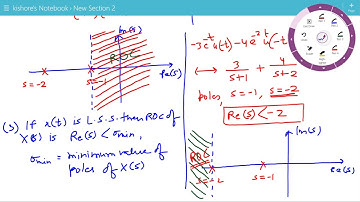 kishores Notebook - New Section 2
Im(s)
ROC
Re(s)
s=-2
s=-1
(3) If x(t) is L.S.S. then ROC of
X(s) is Re(s) < σmin,
σmin = minimum value of
poles of X(s)
-3e^t u(-t) - 4e^2t u(-t)
↔ 3/(s+1) + 4/(s+2)
poles, s=-1, s=-2
Re(s) < -2
Im(s)
ROC
s=-2
s=-1
Re(s)